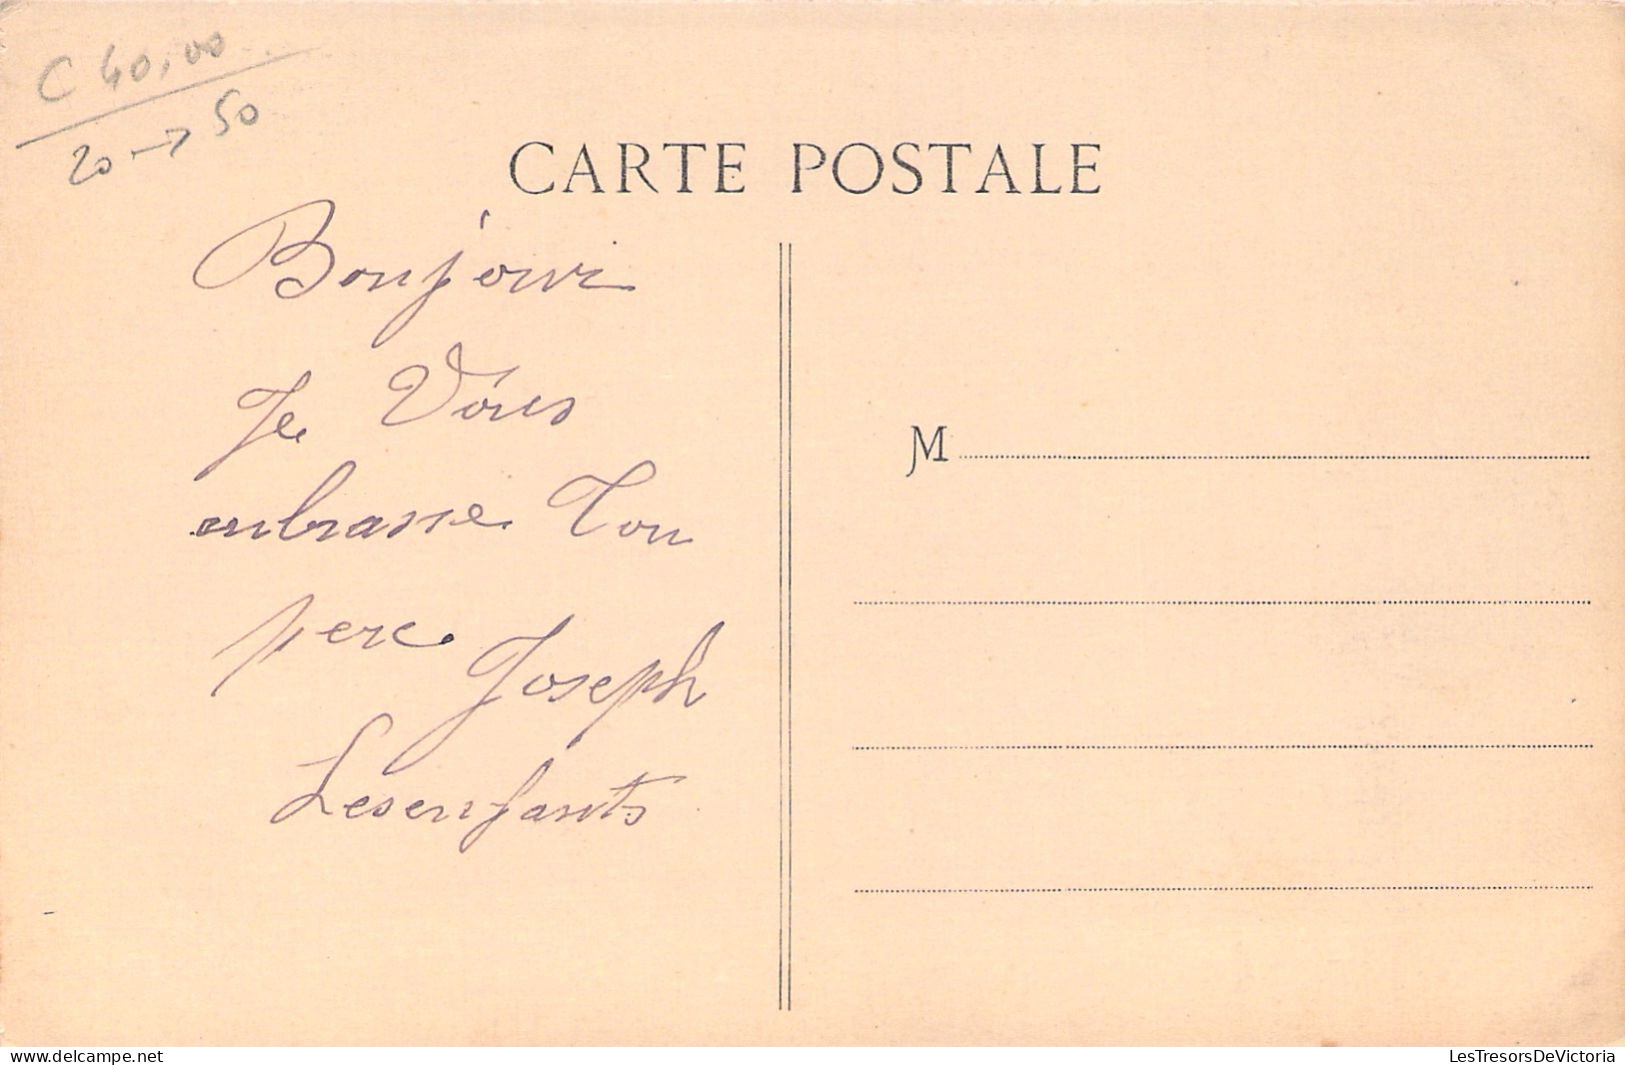 C 40,00
20 → 50
CARTE POSTALE
Bonjour
Je Vous
enbrasse Ton
pere Joseph
Lesenfants
M
delcampe.net
LesTresorsDeVictoria